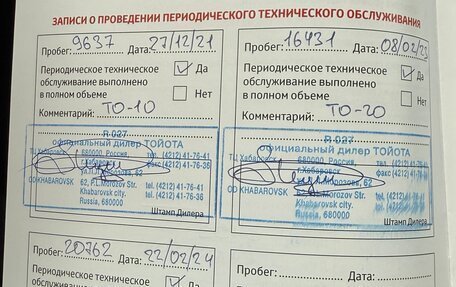 ЗАПИСИ О ПРОВЕДЕНИИ ПЕРИОДИЧЕСКОГО ТЕХНИЧЕСКОГО ОБСЛУЖИВАНИЯ
Пробег: 9637 Дата: 27/12/21
Периодическое техническое обслуживание выполнено в полном объеме
Да
Нет
Комментарий: ТО-10
R 027
официальный дилер ТОЙОТА
680000, Россия,
тел. (4212) 41-76-41
факс (4212) 41-76-36
OD KHABAROVSK
62, P.L.Morozov Str.
Khabarovsk city.
Russia, 680000
tel. (4212) 41-76-41
Штамп Дилера
Пробег: 16431 Дата: 08/02/23
Периодическое техническое
обслуживание выполнено
в полном объеме
Да
Нет
Комментарий: ТО-20
R 027
официальный дилер ТОЙОТА
ТЦ Хабаровск
680000, Россия,
г.Хабаровск
62
OD KHABAROVSK
62, P.L.Morozov Str.
Khabarovsk city.
Russia, 680000
Штамп Дилера
Пробег: 20762 Дата: 22/02/24
Периодическое техническое
Да
Пробег: Дата:
Периодическое техническое
Да